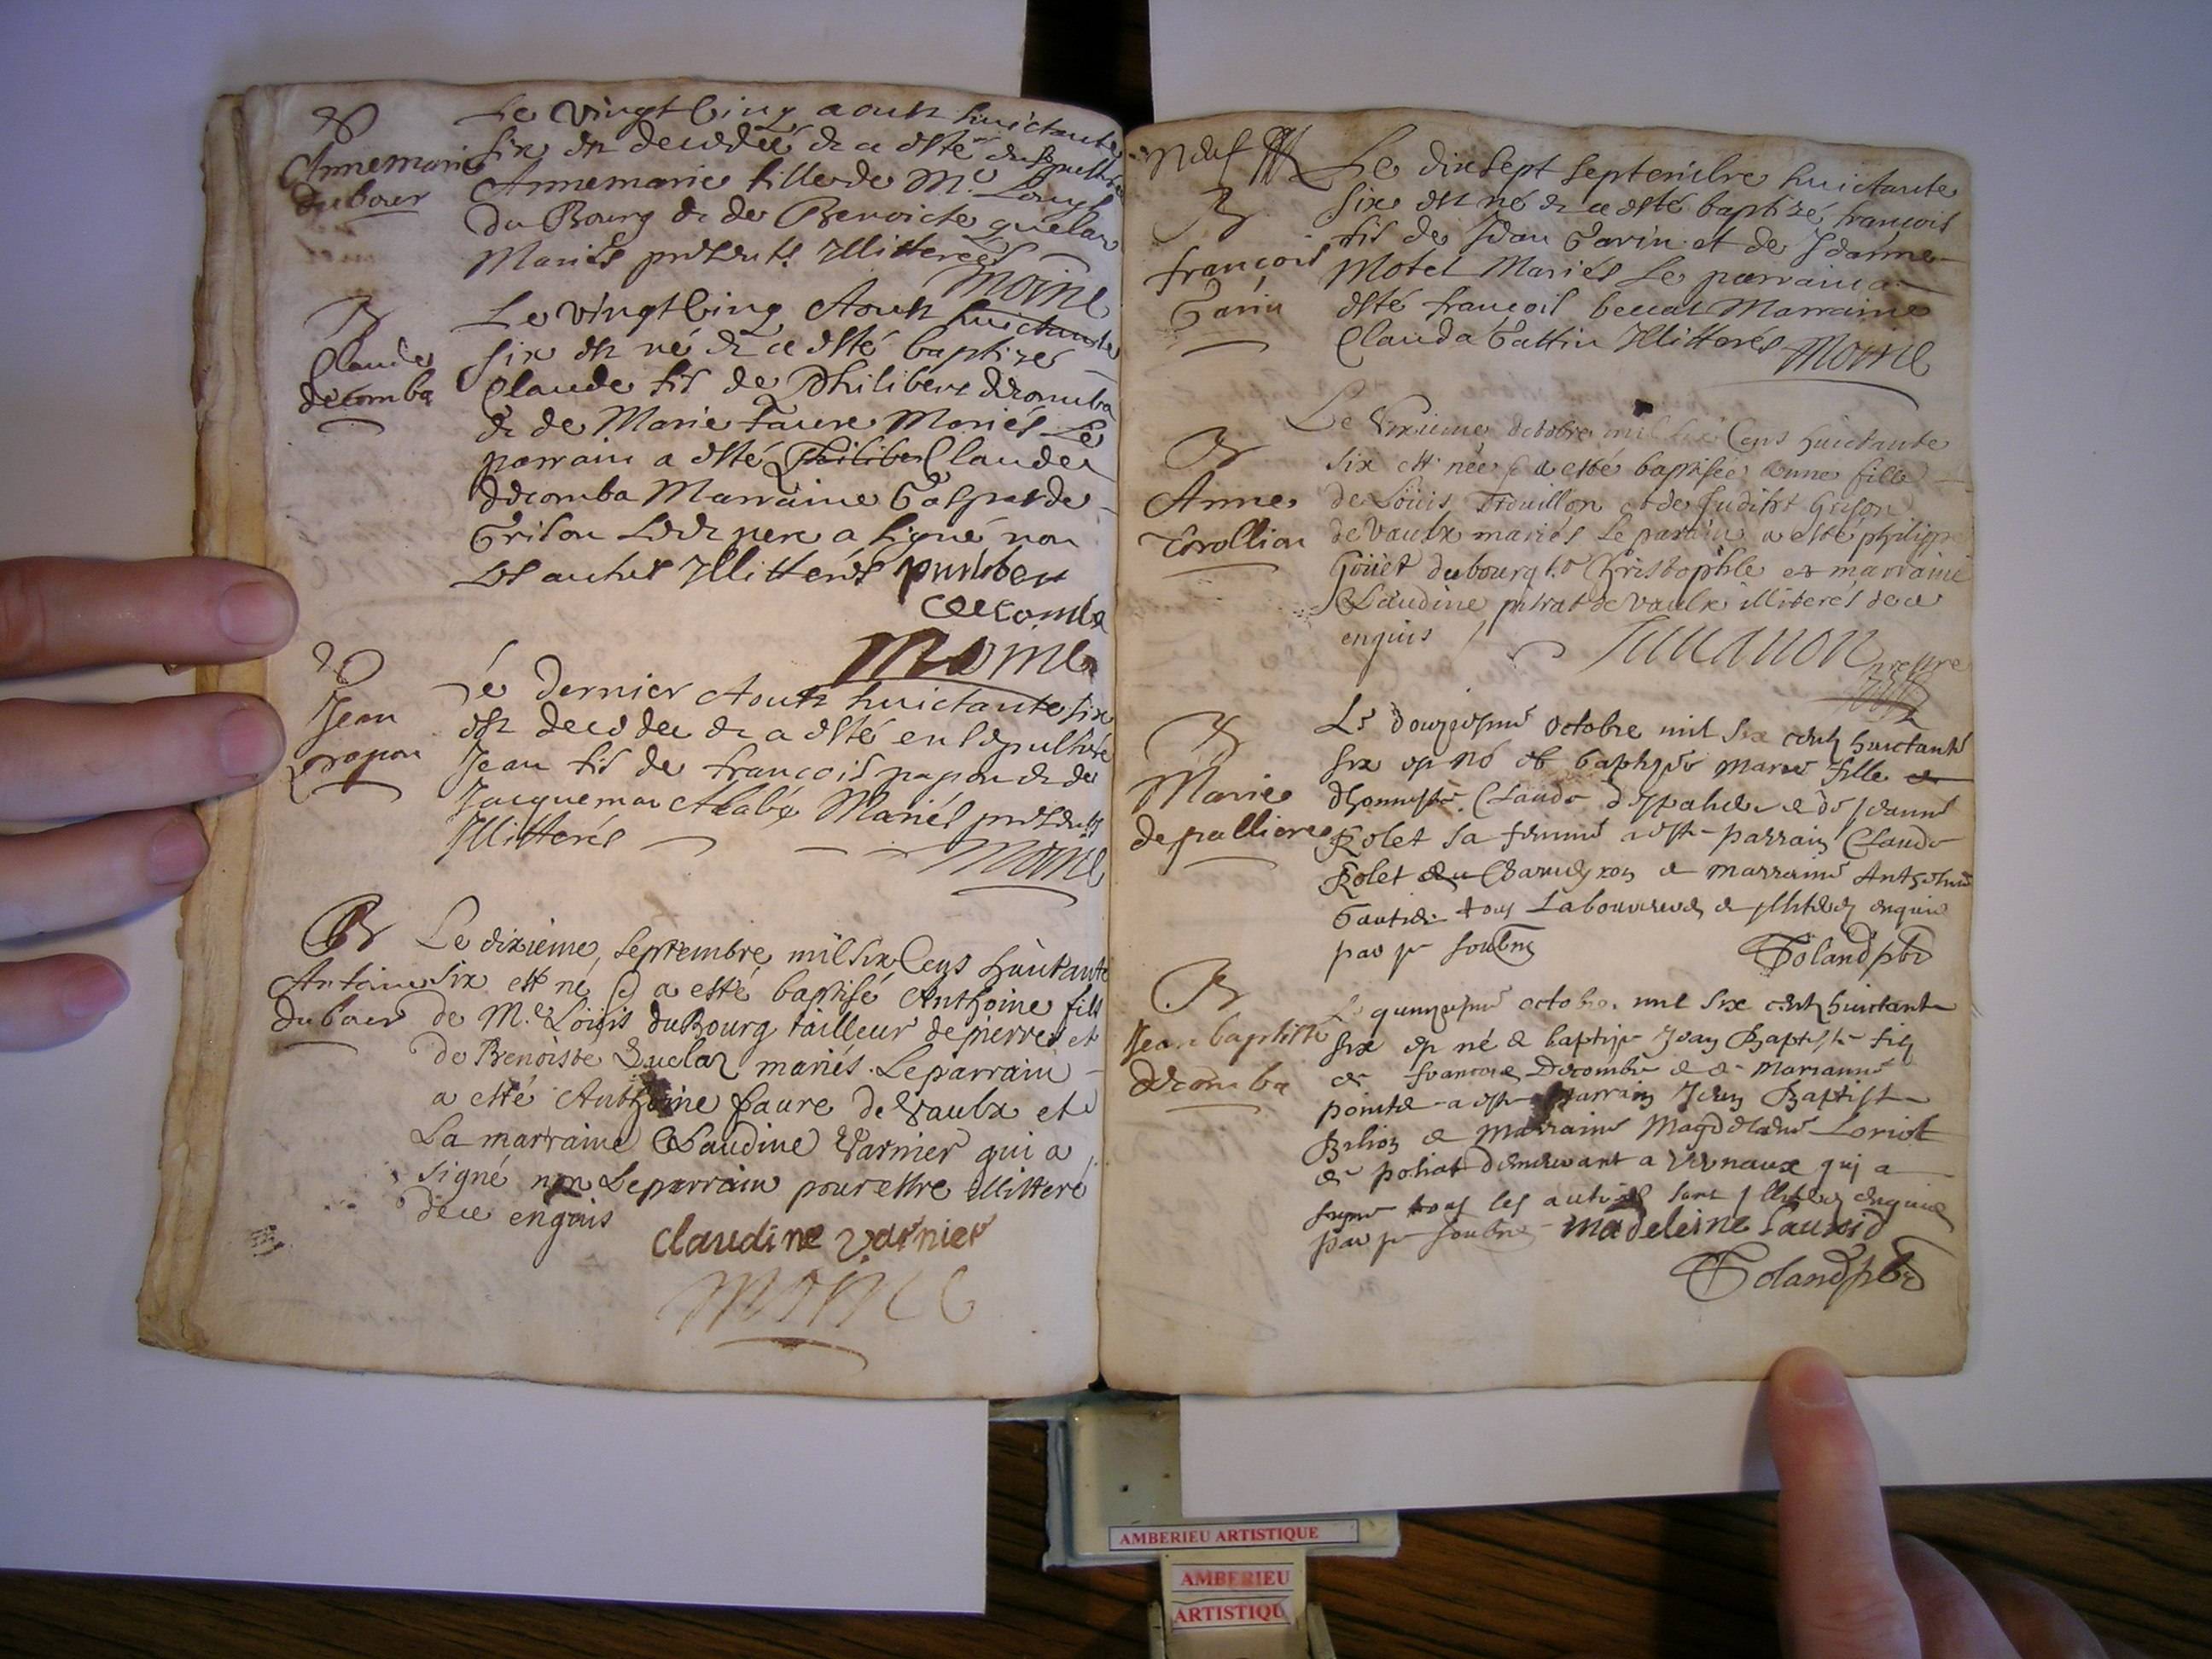 Annemarie
dubour
Le vingt Cinq aoust huictante
six est decedée & a esté
Annemarie fille de Me Louys
Du Bourg & de Benoicte quelar
Mariés presents Illitterés
Moine
B
Claude
decomba
Le vingt Cinq Aoust huictante
six est né & a esté baptizé
Claude fils de Philibert decomba
& de Marie faure Mariés Le
parrain a esté Philiber Claude
decomba Marraine Gasparde
Grison Ledt pere a signé non
Les autres Illitterés
decomba
Moine
Jean
papon
Le dernier Aoust huictante six
est decedee & a esté ensepulturé
Jean fils de francois papon & de
Jacquema Mariés presents
Illitterés
Moine
B
Antoine
dubour
Le dixieme septembre mil six Cens huictante
six est né & a esté baptisé Anthoine fils
de Me Loüis du Bourg tailleur de pierres et
de Benoiste Quelar mariés. Le parrain
a esté Anthoine faure de Vaulx et
La marraine Claudine Varnier qui a
signé non Le parrain pour estre illitteré
de ce enquis
claudine varnier
Moine
Neuf
B
francois
Garin
Le dix sept septembre huictante
six est né & a esté baptizé francois
fils de Jean Garin et de Jeanne
Motel Mariés Le parrain a
esté francois beccat Marraine
Clauda Gattin Illitterés Moine
B
Anne
Trollion
Le octobre mil six Cens huictante
six est née & a esté baptisée Anne fille
de Loüis et de Judith Grison
de Vaulx mariés Le parain a esté philippe
Goüet du bourg St Christophle et marraine
Claudine de Vaulx illiterés de ce
enquis
B
Marie
depalliere
Le douziesme octobre mil six cents huictante
six est né & baptisée marie fille
dhonneste Claude & de Jeanne
Rolet sa femme a esté parrain Claude
Rolet & marraine Anthoine
Gautier tous Laboureurs & illiteres enquis
par je soubne
Toland pbr
B
Jean baptiste
decomba
Le quinziesme octobre mil six cents huictante
six est né & baptise Jean Baptiste fils
de francois Decombe & de Marianne
pointe a este parrain Jean Baptiste
& Marraine Magdelene Loriot
de poliat demeurant a Vernaux qui a
signe tous les autres sont illiteres enquis
par je soubne madeleine
Toland pbr
AMBERIEU ARTISTIQUE
AMBERIEU
ARTISTIQU